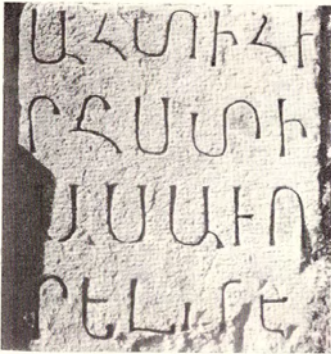 ԱՀՏԻՀԻ
ՐՀՍՏԻ
ՍԱՒՈ
ՐԵԼ